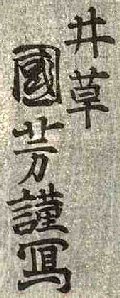 井草
國芳謹冩